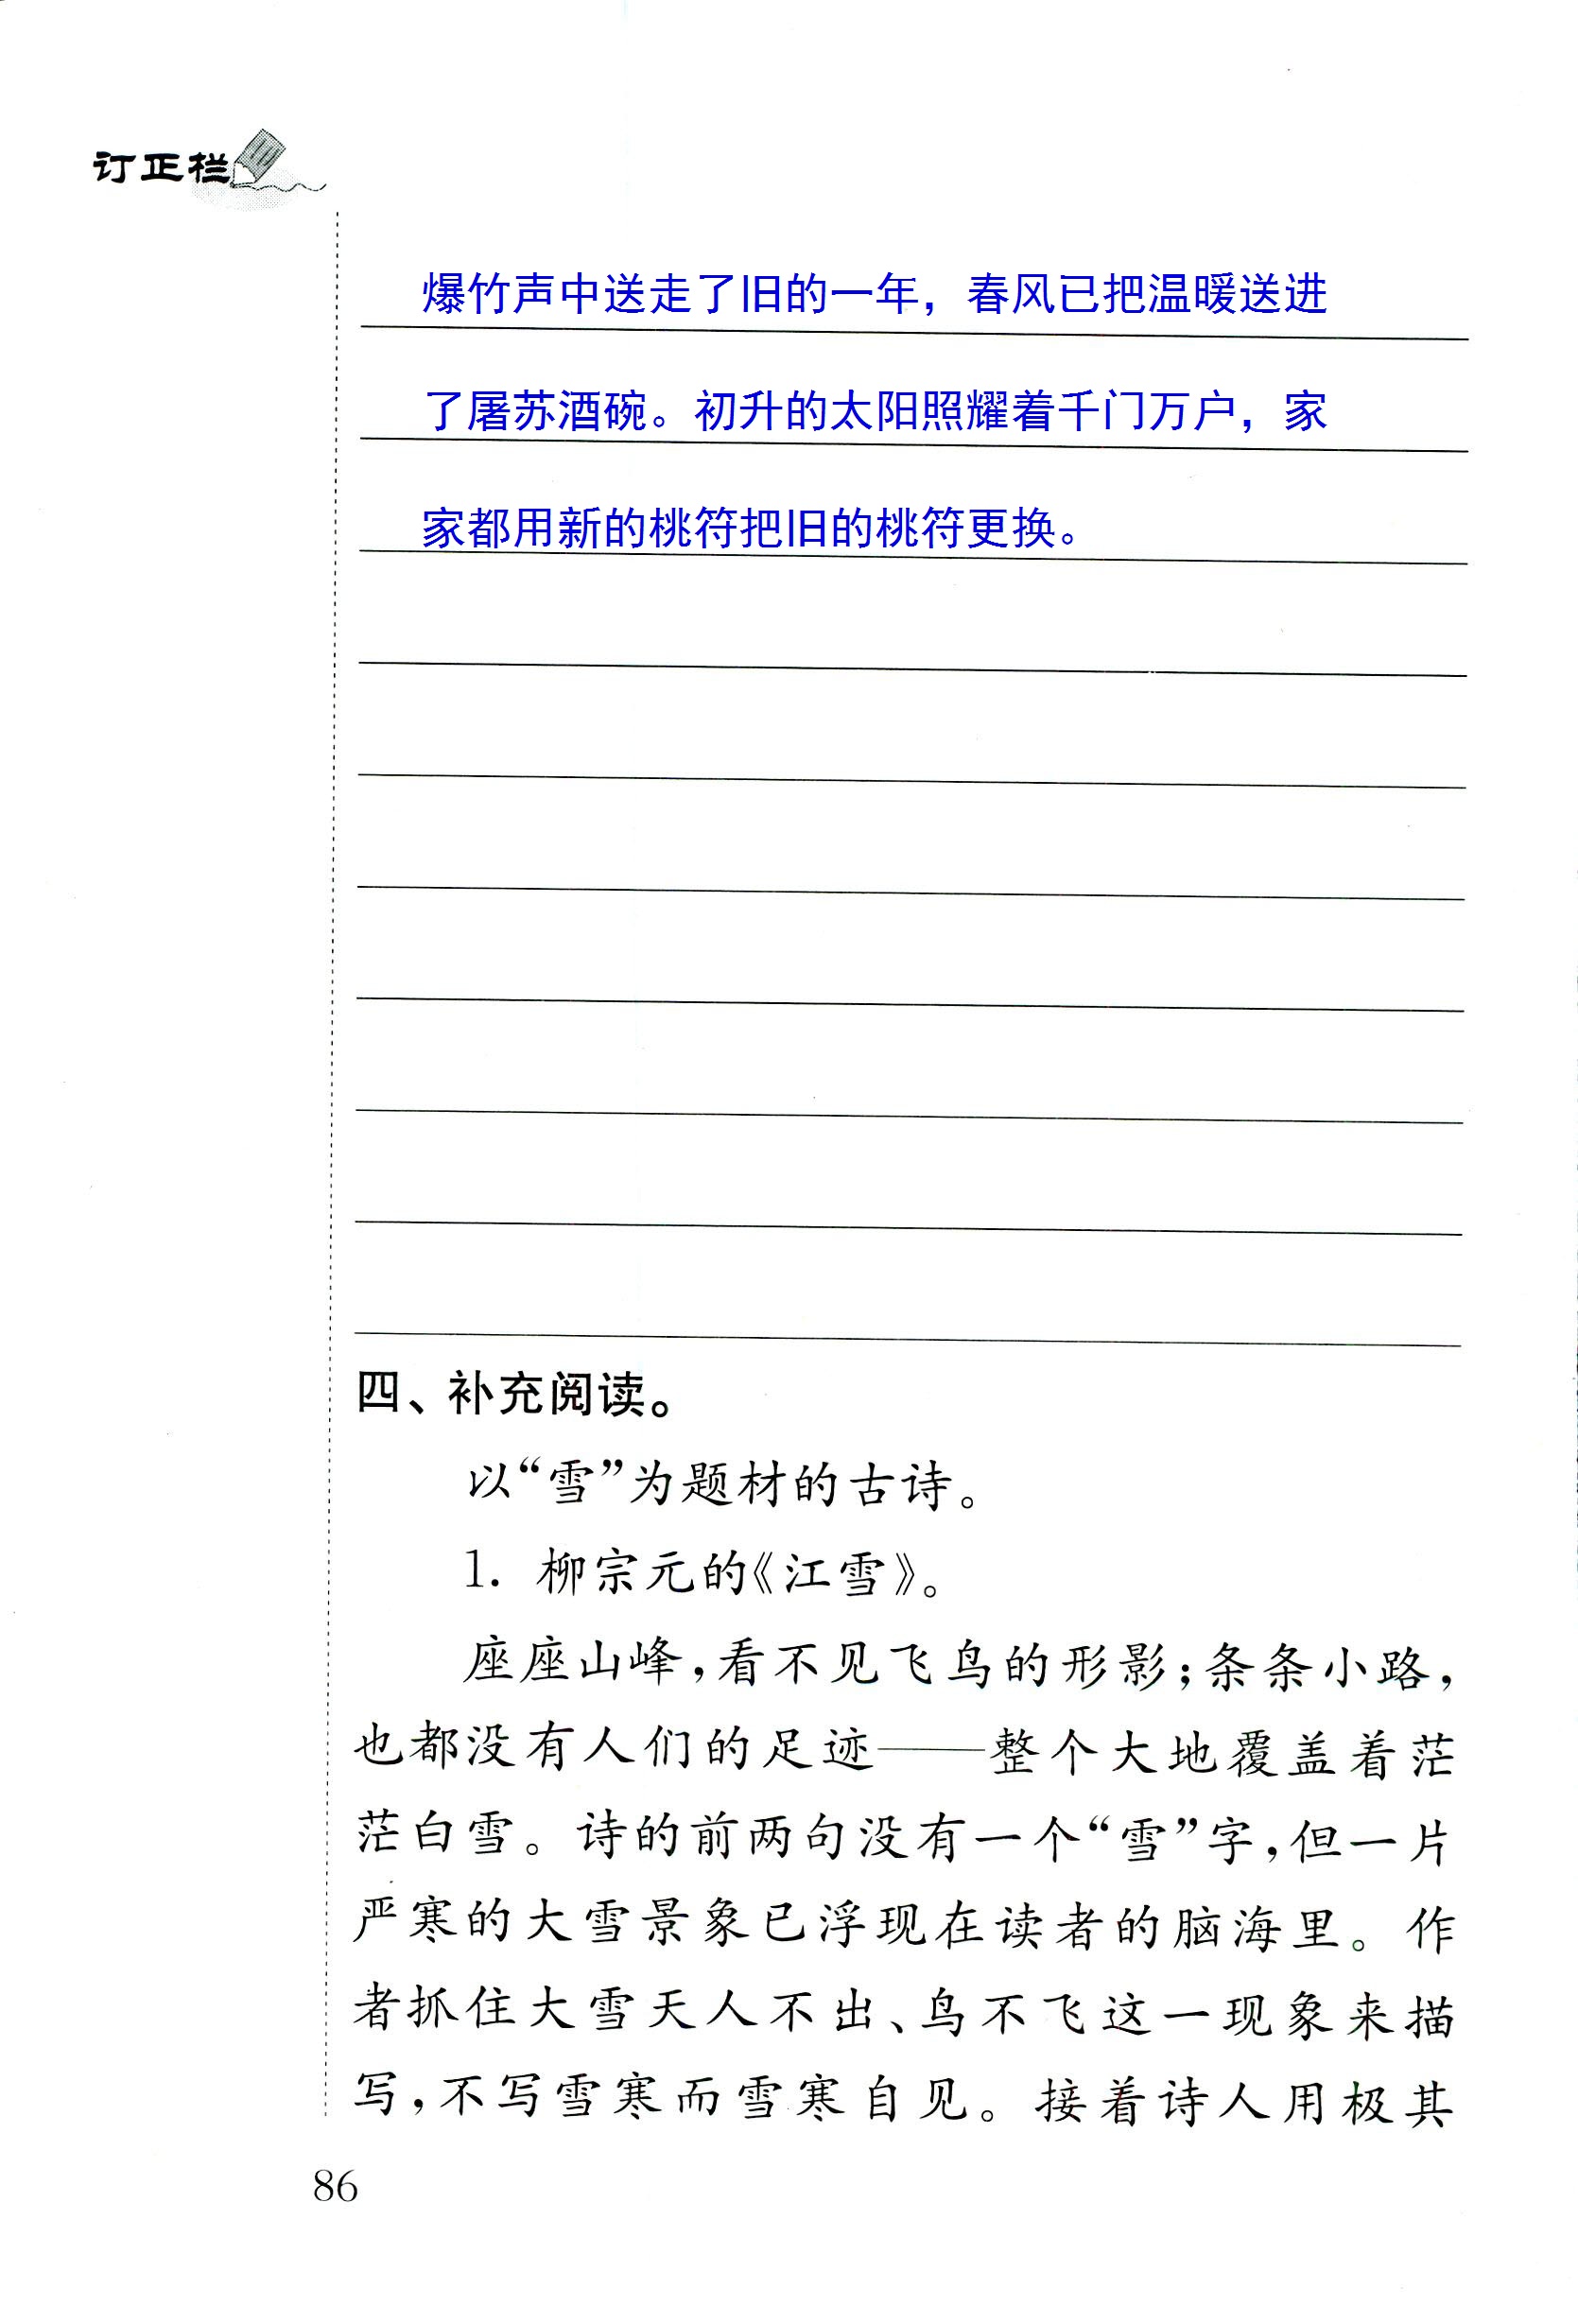 订正栏
爆竹声中送走了旧的一年，春风已把温暖送进
了屠苏酒碗。初升的太阳照耀着千门万户，家
家都用新的桃符把旧的桃符更换。
四、补充阅读。
以“雪”为题材的古诗。
1. 柳宗元的《江雪》。
座座山峰，看不见飞鸟的形影；条条小路，
也都没有人们的足迹——整个大地覆盖着茫
茫白雪。诗的前两句没有一个“雪”字，但一片
严寒的大雪景象已浮现在读者的脑海里。作
者抓住大雪天人不出、鸟不飞这一现象来描
写，不写雪寒而雪寒自见。接着诗人用极其
86